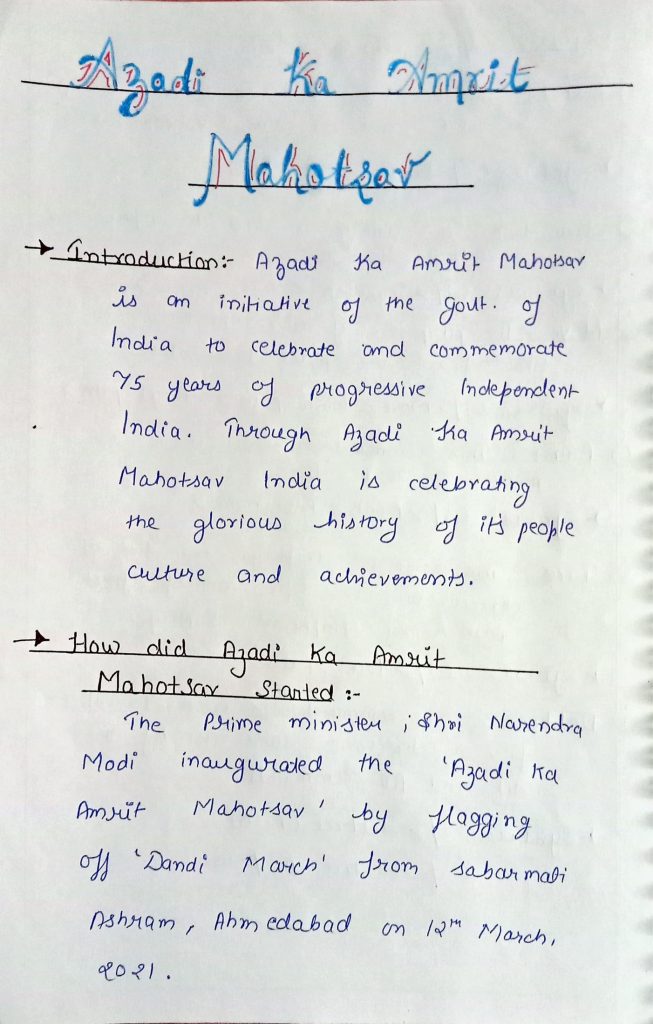 Azadi Ka Amrit
Mahotsav
→ Introduction:- Azadi Ka Amrit Mahotsav
is an initiative of the govt. of
India to celebrate and commemorate
75 years of progressive Independent
India. Through Azadi Ka Amrit
Mahotsav India is celebrating
the glorious history of it's people
culture and achievements.
→ How did Azadi Ka Amrit
Mahotsav Started :-
The Prime minister ; Shri Narendra
Modi inaugurated the 'Azadi Ka
Amrit Mahotsav' by flagging
off 'Dandi March' from sabarmati
Ashram, Ahmedabad on 12th March,
2021.